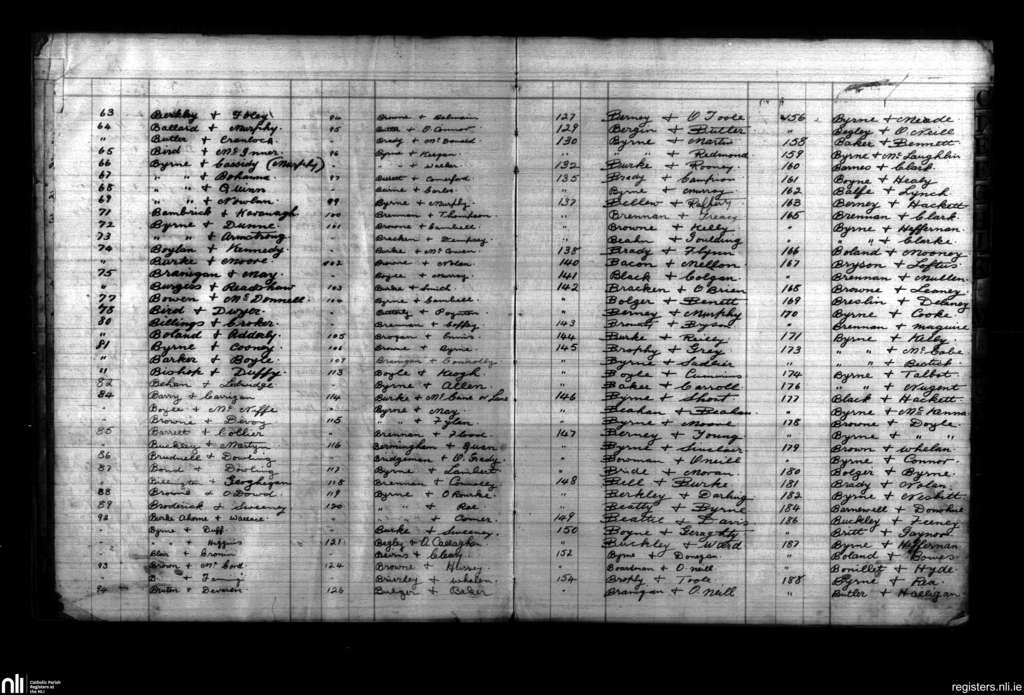 63 Berkley + Foley
64 Ballard + Murphy
" Butler + Cranlock
65 Bird + McInnar
66 Byrne + Cassidy (Murphy)
67 " " + Bohanna
68 " " + Quinn
69 " " + Nowlan
71 Bambrick + Kavanagh
72 Byrne + Dunne
73 " " + Armstrong
74 Boylan + Kennedy
" Burke + Moore
75 Branigan + May
" Burgess + Readshaw
77 Bowen + McDonnell
78 Bird + Dwyer
80 Billings + Croker
" Boland + Addaly
81 Byrne + Cooney
" Barker + Boyle
" Bishop + Duffy
82 Behan +
84 Barry + Carrigan
- Boylee + Mc
- Browne + Bevoy
85 Barrett + Collier
- Buckley + Martyn
86 Brudnell + Dowling
87 Bond + Dowling
" + Geoghegan
88 Browne + O'Dowd
89 Broderick + Sweeney
92 Burke Ahorne + Wallace
- Byrne + Duff
- " + Higgins
- Blair + Cronin
93 Brown + McCord
- B +
94 + Devereux
94 Browne +
95 Butler + O'Connor
- Brady + McDonald
96 Byrne + Keegan
- " +
97 + Comerford
- Byrne +
99 Byrne + Murphy
100 Brennan + Thompson
101 Browne + Campbell
- Bracken + Dempsey
- Burke + McCann
102 Browne + Nolan
- Boylee + Murray
103 Burke + Smith
104 Byrne + Campbell
- + Boynton
- Brennan + Coffey
105 Brogan + Ennis
104 Browne + Byrne
107 Branigan + Connolly
113 Boyle + Keogh
- Byrne + Allen
114 Burke + McCane
- Byrne + May
115 " " +
- Brennan + Flood
116 Birmingham +
- Bridgeman + O'Grady
117 Byrne + Lambert
118 Brennan + Connolly
119 Byrne + O'Rourke
120 " " + Roe
- " + Comer
- Burke + Sweeney
121 Begley + O'Callaghan
- Bevins + Cleary
124 Browne + Hussey
- Brierley + Whelan
126 Bulger + Baker
127 Berney + O'Toole
129 Bergin + Butler
130 Byrne + Martin
" " + Redmond
132 Burke + Rooney
135 Brady + Campion
" Byrne + Murray
137 Bellew + Raffity
" Brennan + Geary
" Browne + Kelly
" Beahn + Goulding
138 Brady + Flynn
140 Bacon + Mellon
141 Black + Colgan
142 Bracken + O'Brien
" Bolger + Benett
" Berney + Murphy
143 + Bryson
144 Burke + Reilly
145 Brophy + Grey
" Byrne + Sadlier
" Boyle + Cummins
" Baker + Carroll
146 Byrne + Short
" Beahan + Beahan
" Byrne + Moore
147 Berney + Young
" Byrne + Sinclair
" Bowman + O'Neill
" Bride + Moran
148 Bell + Burke
" Berkley + Darling
" Beatty + Byrne
149 Beattie + Davis
150 Boyne + Geraghty
" Buckley + Ward
152 Byrne + Donegan
" Boardman + O'Neill
154 Brophy + Toole
" Branigan + O'Neill
156 Byrne + Meade
" Begley + O'Neill
158 Baker + Bennett
159 Byrne + McLaughlin
160 Barnes + Clark
161 Boyne + Healy
162 Balfe + Lynch
163 Berney + Hackett
165 Brennan + Clark
" Byrne + Heffernan
" " " + Clarke
166 Boland + Mooney
167 Bryson + Loftus
" Brennan + Mullen
168 Browne + Leaney
169 Breslin + Delaney
170 Byrne + Cooke
" Brennan + Maguire
171 Byrne + Kiley
173 " " + McCabe
" " "
174 Byrne + Talbot
176 " " + Nugent
177 Black + Hackett
" Byrne + McKenna
178 Browne + Doyle
" Byrne + " "
179 Brown + Whelan
" Byrne + Connor
180 Bolger + Byrne
181 Brady + Nolan
182 Byrne + Nesbitt
184 Barnewell + Donohue
186 Buckley + Feeney
" Britt + Gaynor
187 Byrne + Heffernan
" Boland + Bowes
" Bouillet + Hyde
188 Byrne + Rea
" Butler + Halligan
nli Catholic Parish
Registers at
the NLI
registers.nli.ie